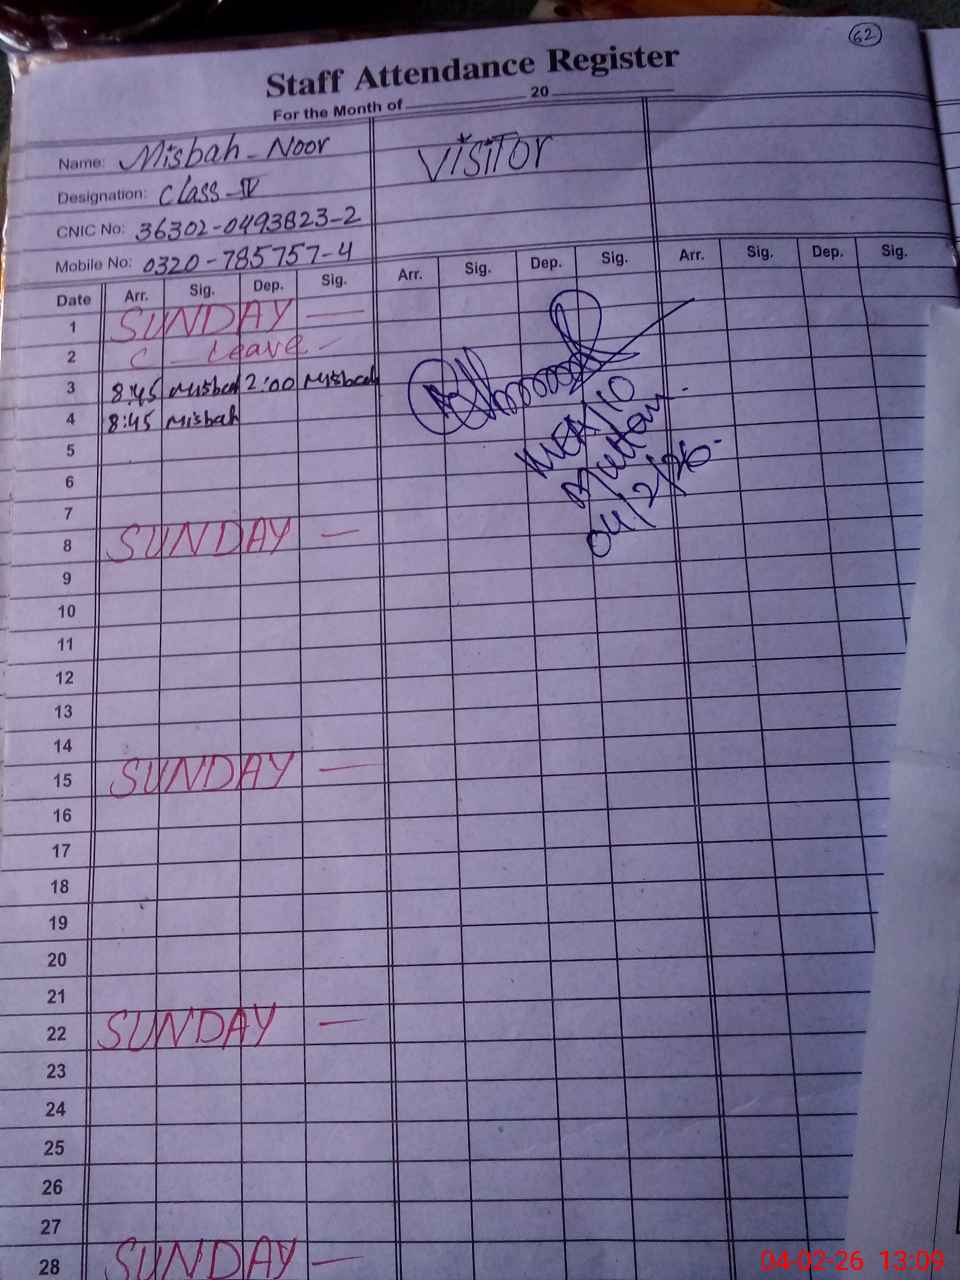 62
Staff Attendance Register
For the Month of 20
Name: Misbah-Noor
VISITOR
Designation: Class-IV
CNIC No: 36302-0493823-2
Mobile No: 0320-785757-4
Date Arr. Sig. Dep. Sig. Arr. Sig. Dep. Sig. Arr. Sig. Dep. Sig.
1 SUNDAY —
2 C - Leave -
3 8:45 Misbah 2:00 Misbah
4 8:45 Misbah
5
6
7
8 SUNDAY —
9
10
11
12
13
14
15 SUNDAY —
16
17
18
19
20
21
22 SUNDAY —
23
24
25
26
27
28 SUNDAY —
MEA/10
Multan
04/2/26.
04-02-26 13:09